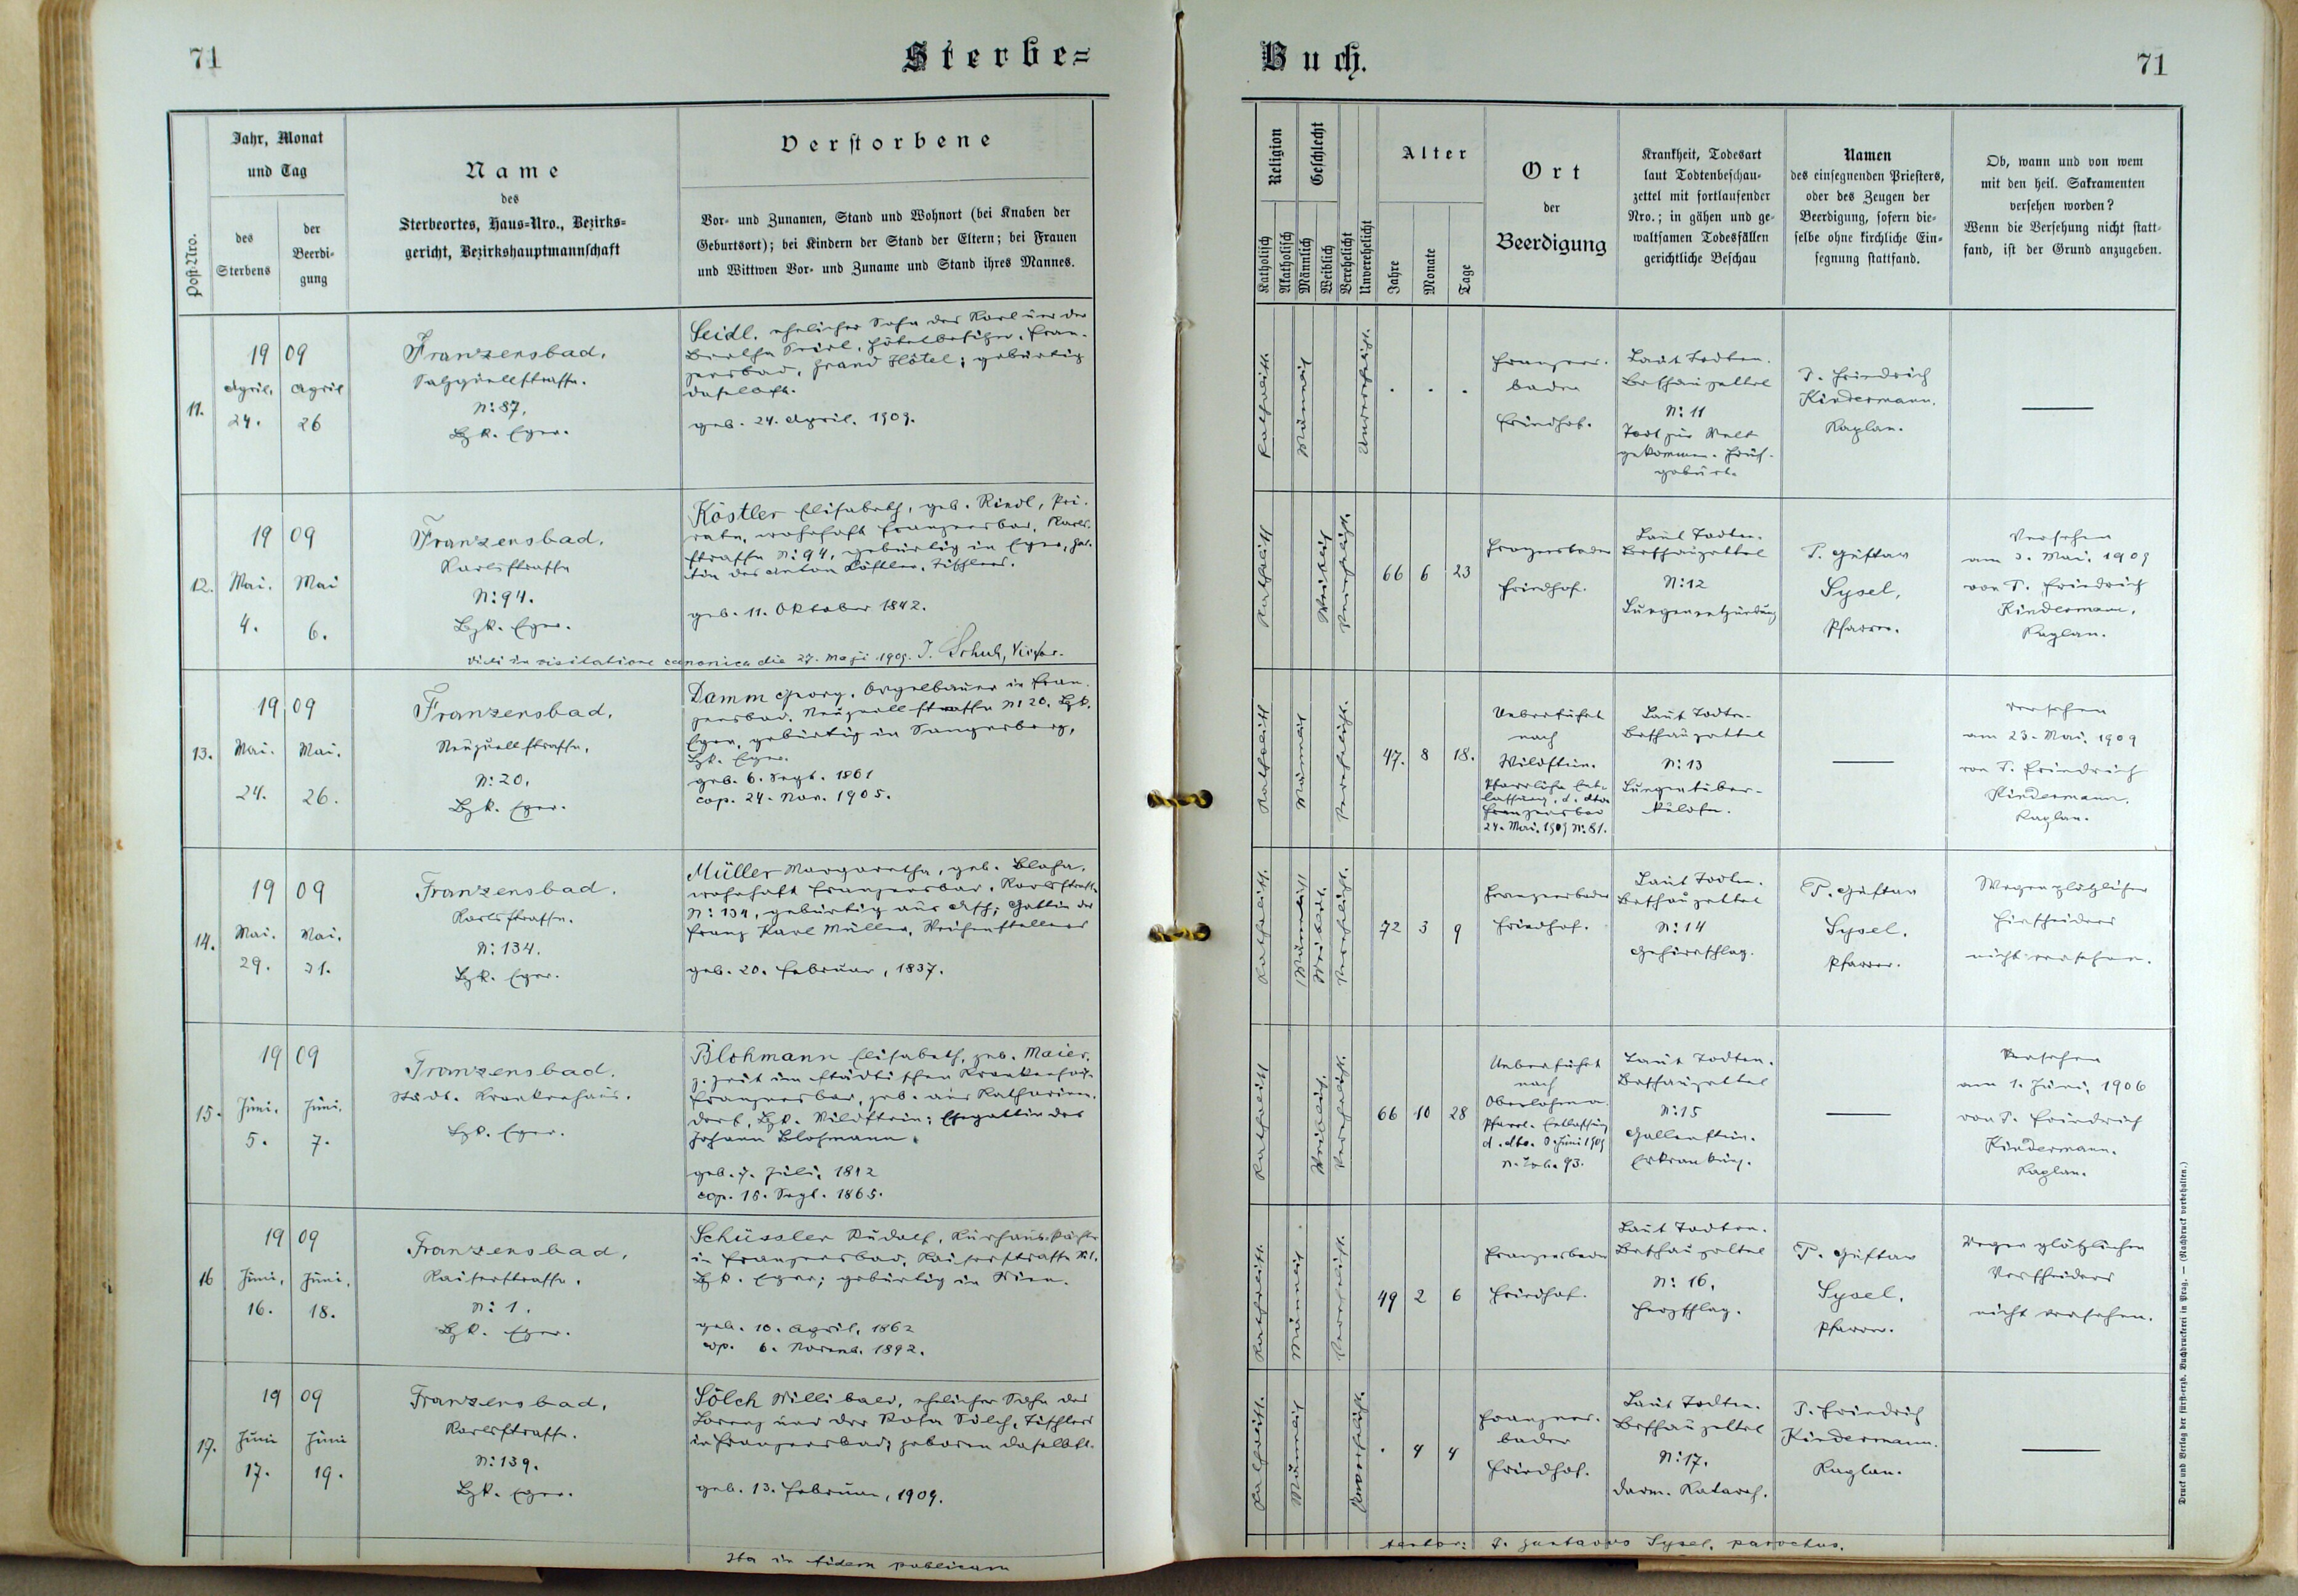 71
Sterbe=
Post=Nro.
Jahr, Monat
und Tag
des
Sterbens
der
Beerdi=
gung
Name
des
Sterbeortes, Haus=Nro., Bezirks=
gericht, Bezirkshauptmannschaft
Verstorbene
Vor= und Zunamen, Stand und Wohnort (bei Knaben der
Geburtsort); bei Kindern der Stand der Eltern; bei Frauen
und Wittwen Vor= und Zuname und Stand ihres Mannes.
11.
19 09
April. April
24. 26
Franzensbad.
Salzquellstrasse.
N: 87.
Bzk. Eger.
Seidl, ehelicher Sohn des Karl und der
Bertha Seidl, Hôtelbesitzer, Fran-
zensbad, Grand Hôtel; gebürtig
daselbst.
geb. 24. April. 1909.
12.
19 09
Mai. Mai
4. 6.
Franzensbad.
Karlsstrasse
N: 94.
Bzk. Eger.
Köstler Elisabeth, geb. Riedl, Pri-
vate, wohnhaft Franzensbad, Karls-
strasse N: 94, gebürtig in Eger, Gat-
tin des Anton Köstler, Tischlers.
geb. 11. Oktober 1842.
vidi in visitatione canonica die 27. Maji 1909. J. Schuh, Vicar.
13.
19 09
Mai. Mai.
24. 26.
Franzensbad.
Neuquellstrasse,
N: 20.
Bzk. Eger.
Damm Georg, Orgelbauer in Fran-
zensbad, Neuquellstrasse N: 20, Bzk.
Eger, gebürtig in Sangerberg,
Bzk. Eger.
geb. 6. Sept. 1861
cop. 24. Nov. 1905.
14.
19 09
Mai. Mai.
29. 31.
Franzensbad.
Karlsstrasse.
N: 134.
Bzk. Eger.
Müller Margaretha, geb. Blaha,
wohnhaft Franzensbad, Karlsstrasse
N: 134, gebürtig aus Asch; Gattin des
Franz Karl Müller,
geb. 20. Februar, 1837.
15.
19 09
Juni. Juni.
5. 7.
Franzensbad.
Städt. Krankenhaus.
Bzk. Eger.
Blohmann Elisabeth, geb. Maier,
z. Zeit im städtischen Krankenhaus
Franzensbad, geb. aus Katharinen-
dorf, Bzk. Wildstein; Ehegattin des
Johann Blohmann.
geb. 7. Juli, 1842
cop. 18. Sept. 1865.
16
19 09
Juni. Juni.
16. 18.
Franzensbad.
Kaiserstrasse.
N: 1.
Bzk. Eger.
Schüssler Rudolf, Kurhaus-Pächter
in Franzensbad, Kaiserstrasse N: 1.
Bzk. Eger; gebürtig in Wien.
geb. 10. April, 1860
cop. 6. Novemb. 1892.
17.
19 09
Juni Juni
17. 19.
Franzensbad.
Karlsstrasse.
N: 139.
Bzk. Eger.
Sölch Willibald, ehelicher Sohn des
Lorenz und der Rosa Sölch, Tischlers
in Franzensbad; geboren daselbst.
geb. 13. Februar, 1909.
Ita in fidem publicam
Buch.
71
Religion
Katholisch
Akatholisch
Geschlecht
Männlich
Weiblich
Verehelicht
Unverehelicht
Alter
Jahre
Monate
Tage
Ort
der
Beerdigung
Krankheit, Todesart
laut Todtenbeschau=
zettel mit fortlaufender
Nro.; in gähen und ge=
waltsamen Todesfällen
gerichtliche Beschau
Namen
des einsegnenden Priesters,
oder des Zeugen der
Beerdigung, sofern die=
selbe ohne kirchliche Ein=
segnung stattfand.
Ob, wann und von wem
mit den heil. Sakramenten
versehen worden?
Wenn die Versehung nicht statt=
fand, ist der Grund anzugeben.
Katholisch.
Männlich
Unverehelicht.
. . .
Franzens-
bader
Friedhof.
Laut Todten-
Beschauzettel
N: 11
Todt zur Welt
gekommen. Früh-
geburt.
P. Friedrich
Kindermann.
Kaplan.
Katholisch
Weiblich
Verehelicht.
66 6 23
Franzensbader
Friedhof.
Laut Todten-
Beschauzettel
N: 12
Lungenentzündung
P. Gustav
Sysel,
Pfarrer.
Versehen
am 3. Mai. 1909
von P. Friedrich
Kindermann,
Kaplan.
Katholisch
Männlich
Verehelicht.
47. 8 18.
Ueberführt
nach
Wildstein.
Pfarrliche Ent-
lassung, d. dto.
Franzensbad
24. Mai. 1909 N: 81.
Laut Todten-
Beschauzettel
N: 13
Lungentuber-
kulose.
versehen
am 23. Mai. 1909
von P. Friedrich
Kindermann.
Kaplan.
Katholisch.
Männlich
Weiblich.
Verehelicht.
72 3 9
Franzensbader
Friedhof.
Laut Todten-
Beschauzettel
N: 14
Gehirnschlag.
P. Gustav
Sysel.
Pfarrer.
Wegen plötzlichen
Hinscheidens
nicht versehen.
Katholisch
Weiblich.
Verehelicht.
66 10 28
Ueberführt
nach
Oberlohma.
Pfarrl. Entlassung
d. dto. 5. Juni 1909
N. Exh. 93.
Laut Todten-
Beschauzettel
N: 15
Gallenstein-
Erkrankung.
Versehen
am 1. Juni, 1906
von P. Friedrich
Kindermann.
Kaplan.
Katholisch.
Männlich
Verehelicht.
49 2 6
Franzensbader
Friedhof.
Laut Todten-
Beschauzettel
N: 16.
Herzschlag.
P. Gustav
Sysel.
Pfarrer.
Wegen plötzlichen
Verscheidens
nicht versehen.
Katholisch.
Männlich
Unverehelicht.
. 4 4
Franzens-
bader
Friedhof.
Laut Todten-
Beschauzettel
N: 17.
Darm-Katarrh.
P. Friedrich
Kindermann.
Kaplan.
testor: P. Gustavus Sysel, parochus.
Druck und Verlag der fürst=erzb. Buchdruckerei in Prag. — (Nachdruck vorbehalten.)